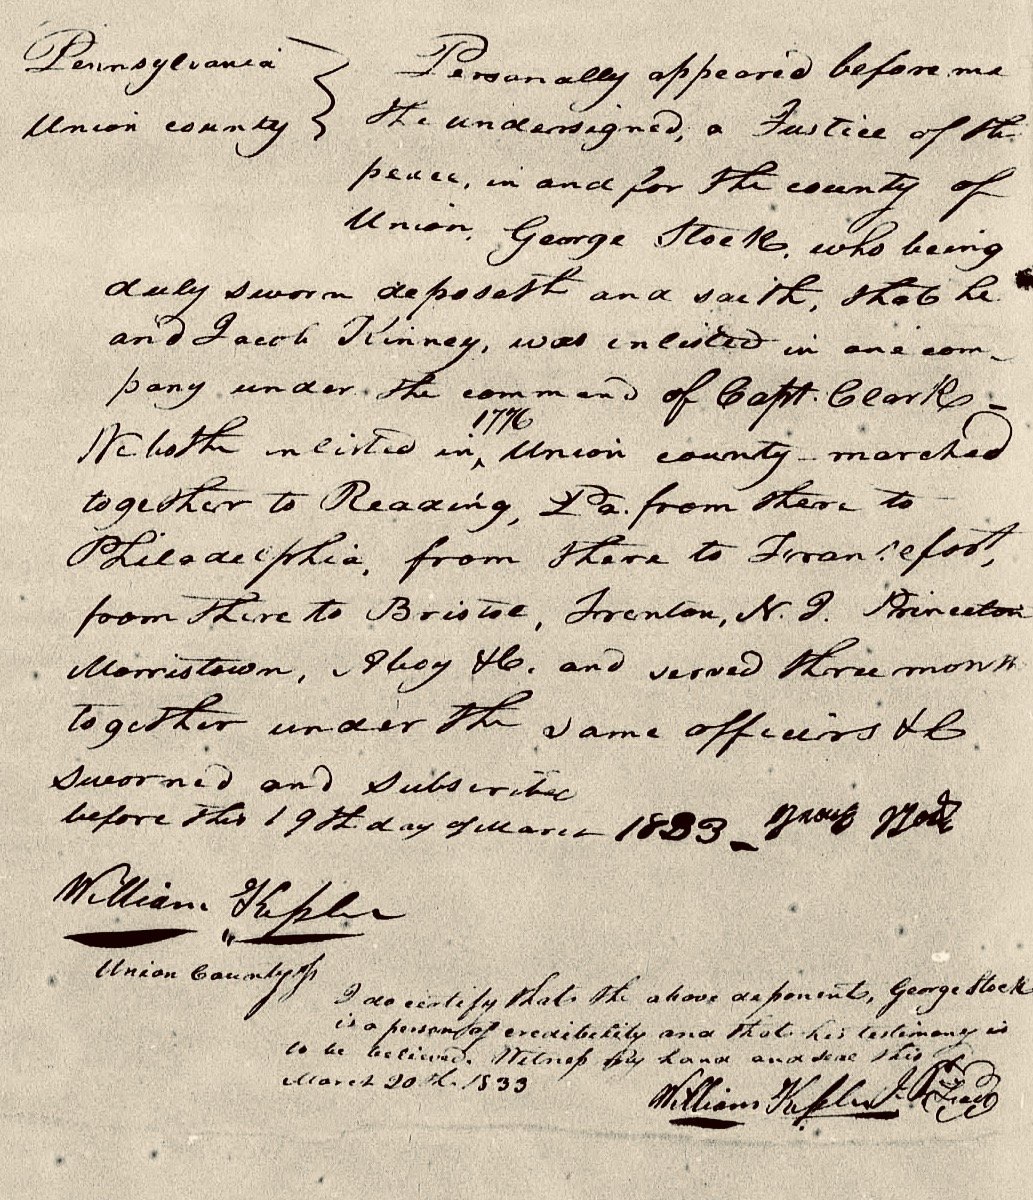 Pennsylvania
Union county
Personally appeared before me
the undersigned, a Justice of the
peace, in and for the county of
Union, George Stock, who being
duly sworn deposeth and saith, that he
and Jacob Kinney, was enlisted in one com-
pany under the command of Capt. Clark -
We both enlisted in, 1776 Union county - marched
together to Reading, Pa. from there to
Philadelphia, from there to Frankfort,
from there to Bristol, Trenton, N. J. Princeton
Morristown, Aboy &C. and served three month
together under the same officers &C
sworned and subscribed
before this 19th day of March 1833 -
William Kepler
Union County ss
I do certify that the above deponent, George Stock
is a person of credibility and that his testimony is
to be believed. Witness my hand and seal this
March 20th 1833
William Kepler J. P. Seal